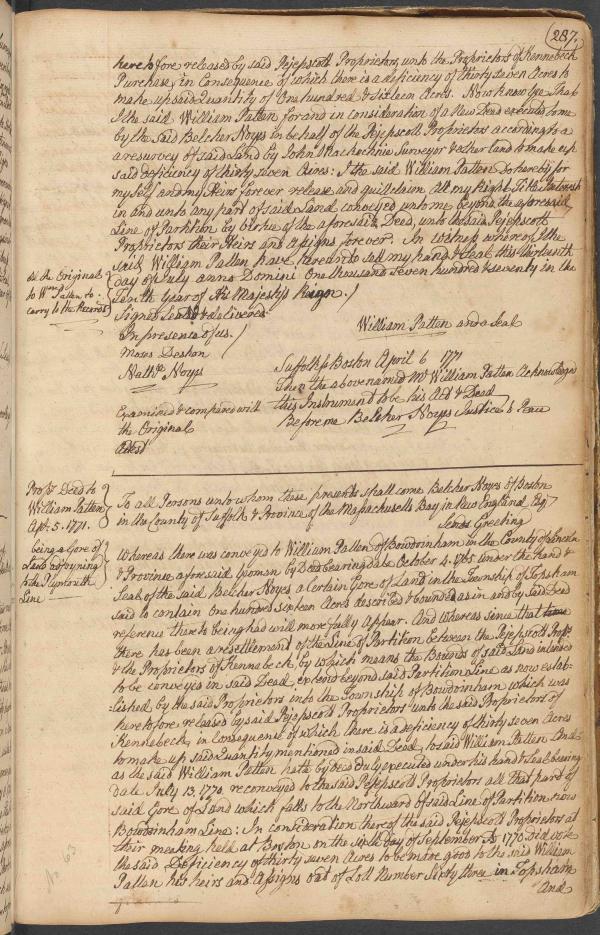 (287)
heretofore released by said Pejepscott Proprietors unto the Proprietors of Kennebeck
Purchase, in Consequence of which there is a deficiency of thirty seven Acres to
make up said Quantity of One hundred & Sixteen Acres. Now know ye That
I the said William Patten for and in consideration of a New Deed executed to me
by the said Belcher Noyes in behalf of the Pejepscott Proprietors according to a
a resurvey of said Land by John Surveyor & other land to make up
said deficiency of thirty seven Acres: I the said William Patten do hereby for
myself and my Heirs forever release and quitclaim All my Right Title Interest
in and unto any part of said Land convey'd unto me beyond the aforesaid
Line of Partition by virtue of the aforesaid Deed, unto the said Pejepscott
Proprietors their Heirs and Assigns forever. In Witness whereof I the
said William Patten have hereunto sett my hand & seal this thirteenth
day of July anno Domini One thousand Seven hundred & seventy in the
Tenth Year of His Majestys Reign.
the Original
to Wm Patten to
carry to the Records
Signed Sealed & delivered
In presence of us.
William Patten and a Seal
Moses Deshon
Nathl. Noyes
Suffolk ss Boston April 6 1771
Then the abovenamed Mr William Patten Acknowledged
this Instrument to be his Act & Deed
Before me Belcher Noyes Justice of Peace
Examined & compared with
the Original
Attest
Props. Deed to
William Patten
Apr. 5. 1771.
being a Gore of
Land adjoyning
to the Plymouth
Line
To all Persons unto whom these presents shall come Belcher Noyes of Boston
in the County of Suffolk & Province of the Massachusetts Bay in New England Esqr
Sends Greeting
Whereas there was conveyed to William Patten of Bowdoinham in the County of Lincoln
& Province aforesaid Yeoman by Deed bearing date October 4. 1765 under the hand &
Seal of the said Belcher Noyes a certain Gore of Land in the Township of Topsham
said to contain One hundred Sixteen Acres described & bounded as in and by said Deed
reference thereto being had will more fully Appear. And whereas since that time
there has been a resettlement of the Line of Partition between the Pejepscott Props.
& the Proprietors of Kennebeck, by which means the Bounds of said Land intended
to be conveyed in said Deed extend beyond said Partition Line as now estab-
-lished by the said Proprietors into the Township of Bowdoinham which was
heretofore released by said Pejepscott Proprietors unto the said Proprietors of
Kennebeck, in consequence of which there is a deficiency of thirty seven Acres
to make up said Quantity mentioned in said Deed, to said William Patten And
as the said William Patten hath by deed duly executed under his hand & Seal bearing
date July 13. 1770. reconveyed to the said Pejepscott Proprietors all that part of
said Gore of Land which falls to the Northward of said Line of Partition now
Bowdoinham Line: In consideration thereof the said Pejepscott Proprietors at
their meeting held at Boston on the sixth day of September 1770. did vote
the said Deficiency of thirty seven Acres to be made good to the said William
Patten his heirs and Assigns out of Lott Number Sixty three in Topsham
And
No 63